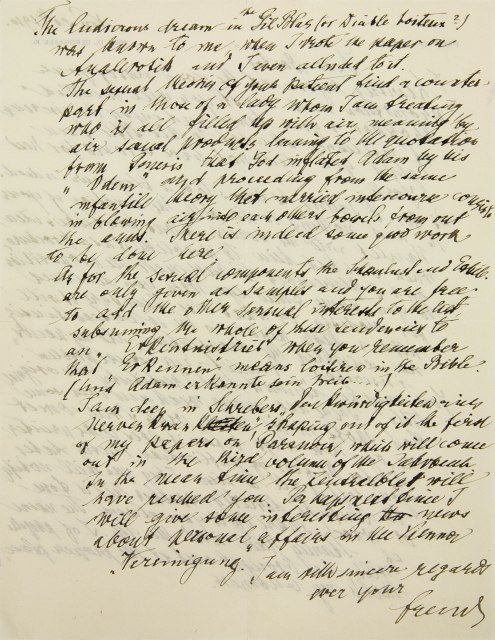 The ludicrous dream in the Gil Blas (or Diable boiteux?)
was known to me, when I wrote the paper on
Analerotik and I even alluded to it.
The sexual theory of your patient find a counter
part in those of a lady whom I am treating
who is all filled up with air, meaning by
air sexual products owing to the quotation
from Genesis that God inflated Adam by his
"Odem" and proceeding from the same
infantile theory that married intercourse consists
in blowing air into each others bowels from out
the anus. There is indeed some good work
to be done here.
As for the sexual components the Schaulust and
are only given as samples and you are free
to add the other sensual interests to the list
subsuming the whole of these tendencies to
an "Erkenntnistrieb" when you remember
that Erkennen means coitered in the Bible.
(Und Adam erkannte sein Weib)
I am deep in Schrebers, Denkwürdigkeiten eines
Nervenkranken, shaping out of it the first
of my papers on Paranoia, which will come
out in the third volume of the Jahrbuch.
In the mean time the Zentralblatt will
have reached you. Perhaps since I
will give some interesting news
about personal affairs in the Vienner
"Vereinigung."
I am with sincere regards
ever your
Freud